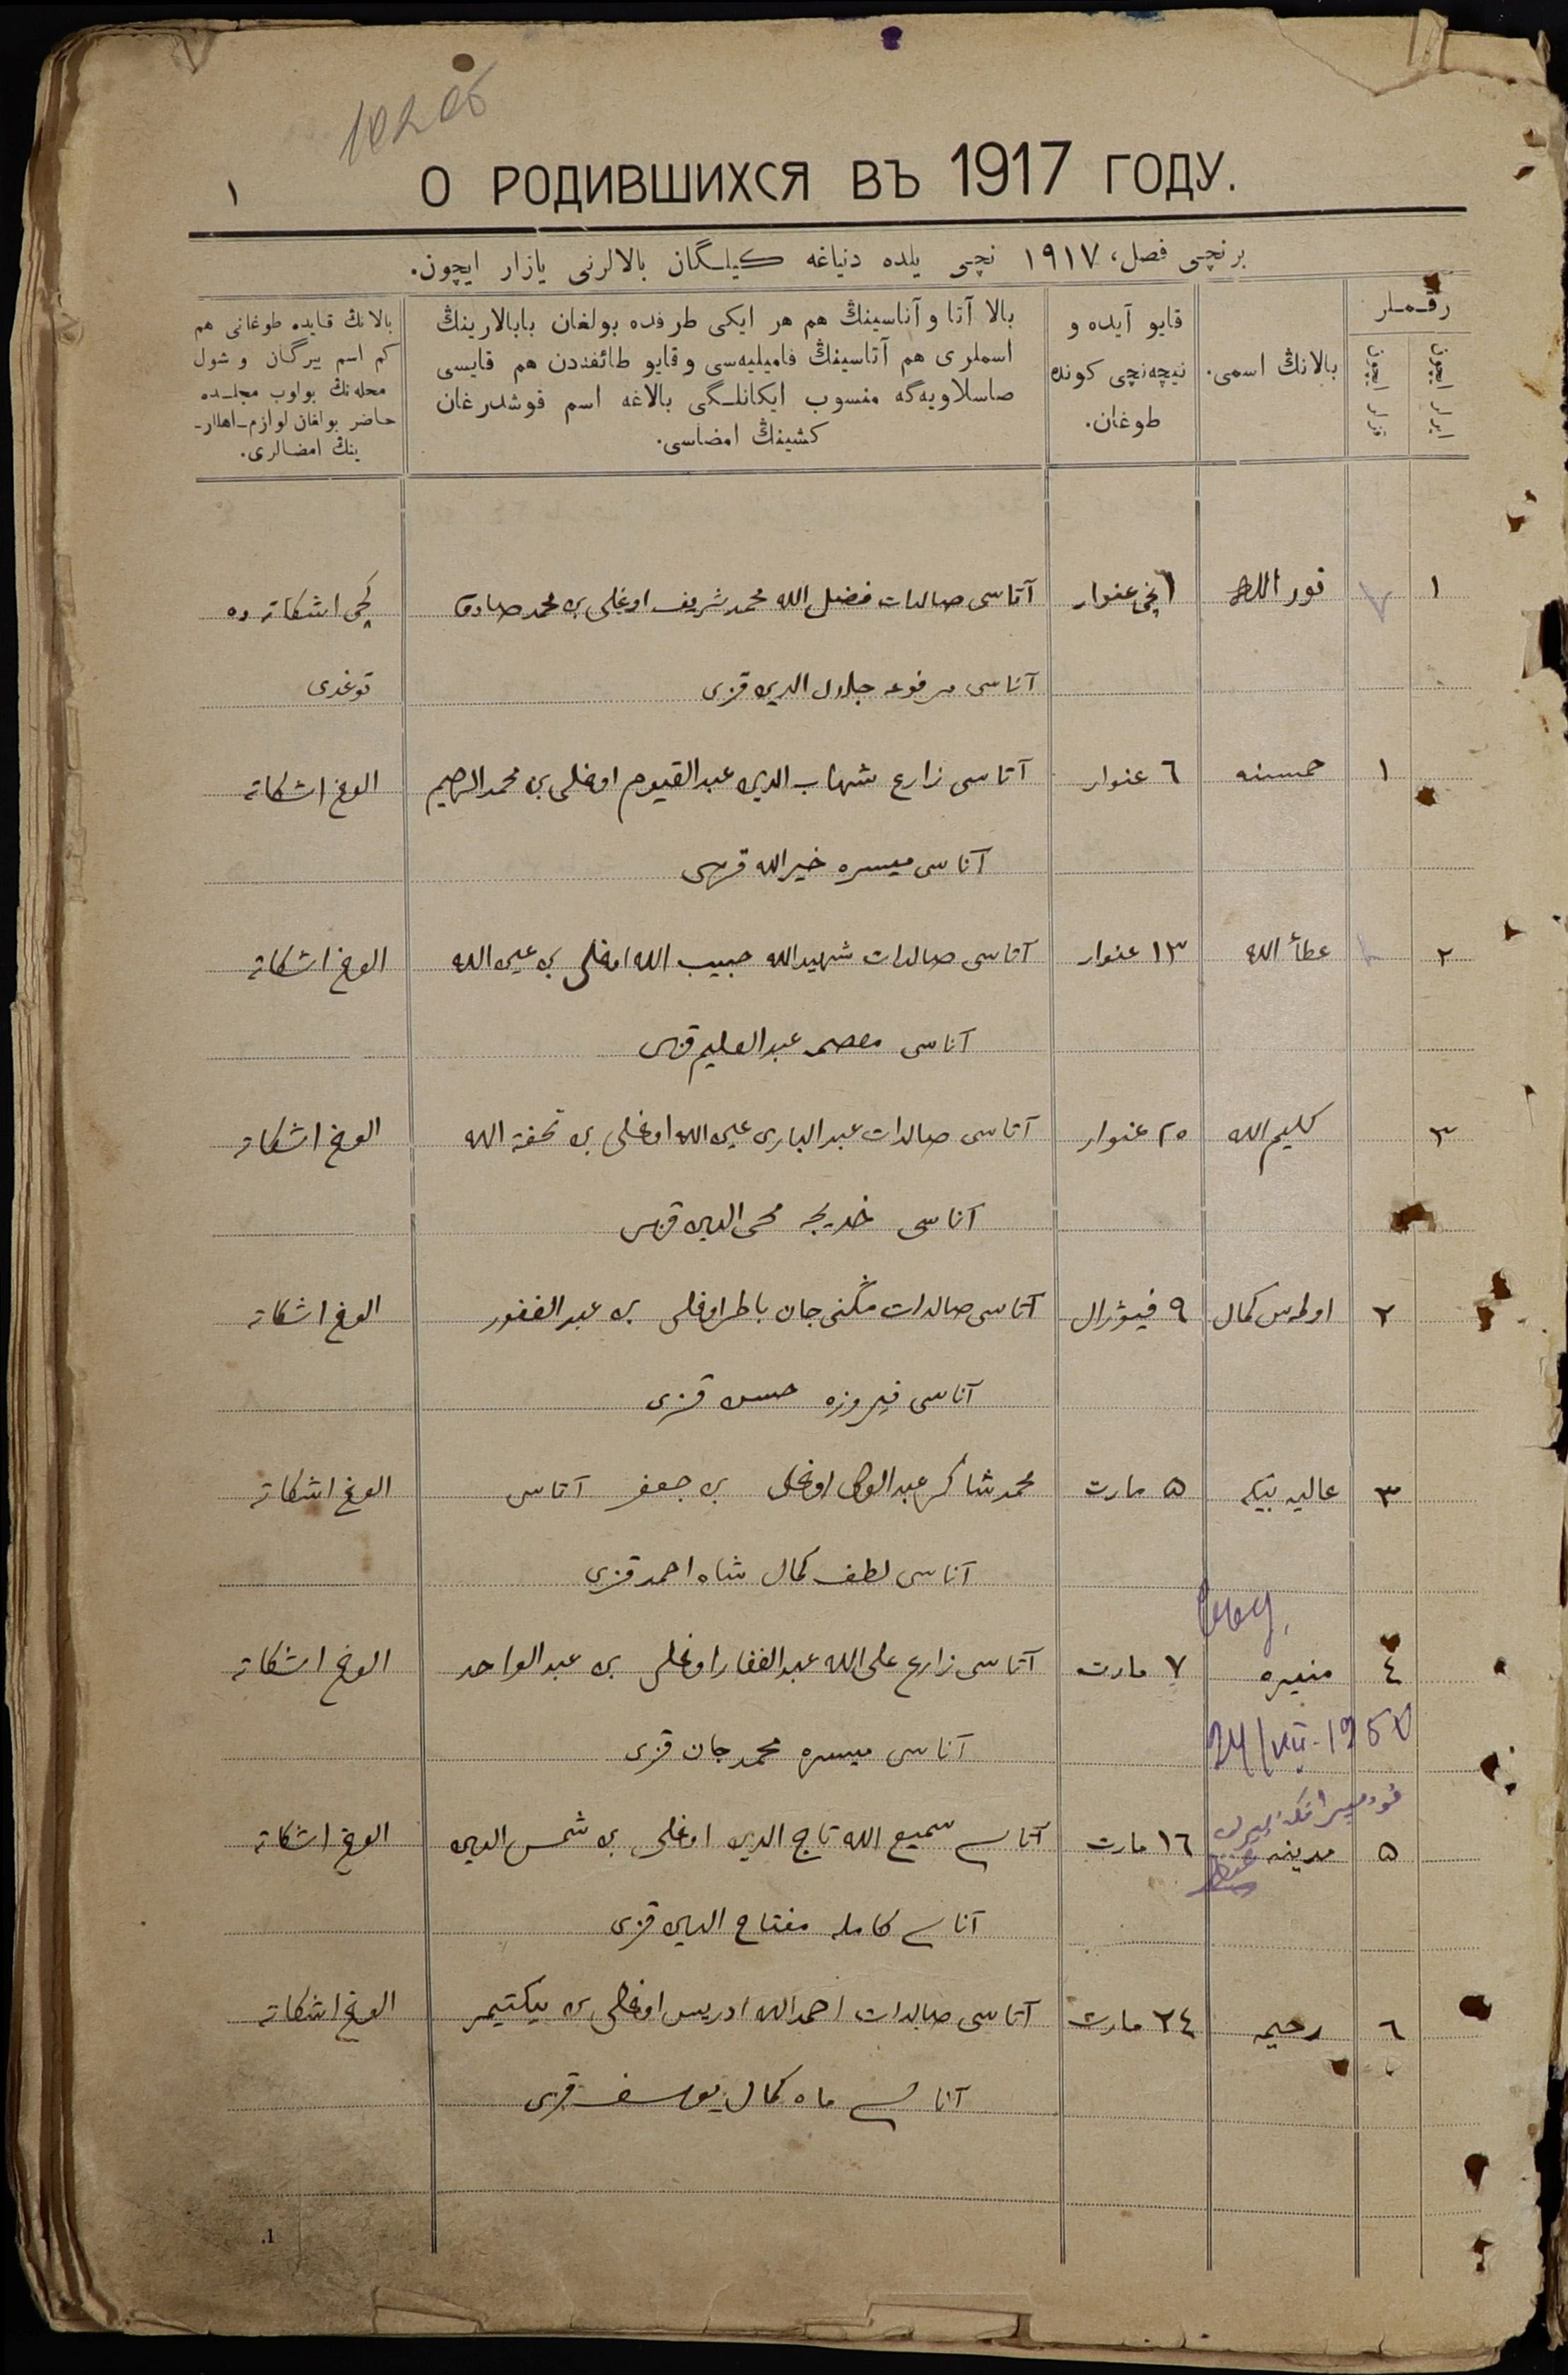 О РОДИВШИХСЯ ВЪ 1917 ГОДУ.
١
برنچی فصل، ١٩١٧ نچی یلده دنیاغه کیلگان بالالرنی یازار ایچون.
رقملر
ایرلر ایچون
قزلر ایچون
بالانڭ اسمی.
قایو آیده و
نیچەنچی کونده
طوغان.
بالا آتا و آناسینڭ هم هر ایکی طرفده بولغان بابالارینڭ
اسملری هم آتاسینڭ فامیلیەسی و قایو طائفەدن هم قایسی
صاسلاویەگە منسوب ایکانلگی بالاغه اسم قوشدرغان
کشینڭ امضاسی.
بالانڭ قایده طوغانی هم
کم اسم بیرگان و شول
محلەنڭ بولوب مجلسده
حاضر بولغان لوازم اهللر-
ینڭ امضالری.
١ نور الله ١ نچی عنوار آتاسی صالدات فضل الله محمد شریف اوغلی بن محمد صادق کچی اشکاتە ده
آناسی مرفوعه جلال الدین قزی توغدی
١ حسنه ٦ عنوار آتاسی زارع شهاب الدین عبد القیوم اوغلی بن محمد الرحیم الوغ اشکاتە
آناسی میسره خیرالله قزی
٢ عطاء الله ١٣ عنوار آتاسی صالدات شهیدالله حبیب الله اوغلی بن الوغ اشکاتە
آناسی معصمه عبد العلیم قزی
٣ کلیم الله ٢٥ عنوار آتاسی صالدات عبد الباری اوغلی بن تحفة الله الوغ اشکاتە
آناسی خدیجه محی الدین قزی
٢ کمال ٩ فیورال آتاسی صالدات مڭنی جان باطر اوغلی بن عبد الغفور الوغ اشکاتە
آناسی فیروزه حسن قزی
٣ عالیه بیکه ٥ مارت محمد شاکر اوغلی بن جعفر آتاسی الوغ اشکاتە
آناسی لطف کمال شاه احمد قزی
٤ منیره ٧ مارت آتاسی زارع علی الله عبد الغفار اوغلی بن عبد الواحد الوغ اشکاتە
24/VII-1950
آناسی میسره محمد جان قزی
٥ مدینه ١٦ مارت آتاسی سمیع الله تاج الدین اوغلی بن شمس الدین الوغ اشکاتە
آناسی کامله مفتاح الدین قزی
٦ رحیمه ٢٤ مارت آتاسی صالدات احمد الله ادریس اوغلی بن بیکتیمر الوغ اشکاتە
آناسی ماه کمال یوسف قزی
1.